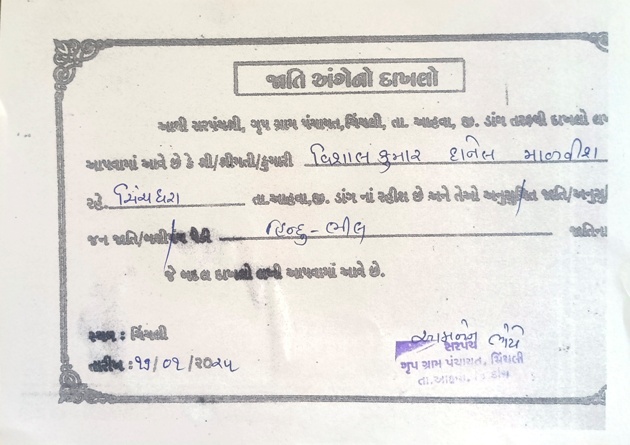 જાતિ અંગેનો દાખલો
આથી સરપંચશ્રી, ગૃપ ગ્રામ પંચાયત,ચિંચલી, તા. આહવા, જી. ડાંગ તરફથી દાખલો લખ
આપવામાં આવે છે કે શ્રી/શ્રીમતી/કુમારી વિશાલકુમાર દાનેલ માળવીશ
રહે ચિંચધરા તા.આહવા,જી. ડાંગ નાં રહીશ છે અને તેઓ અનુસુચિત જાતિ/અનુસુ
જન જાતિ/બક્ષી હિન્દુ-ભીલ જાતિના
જે બદલ દાખલો લખી આપવામાં આવે છે.
સ્થળ : ચિંચલી
તારીખ :
સરપંચ
ગૃપ ગ્રામ પંચાયત, ચિંચલી
તા.આહવા, જિ.ડાંગ